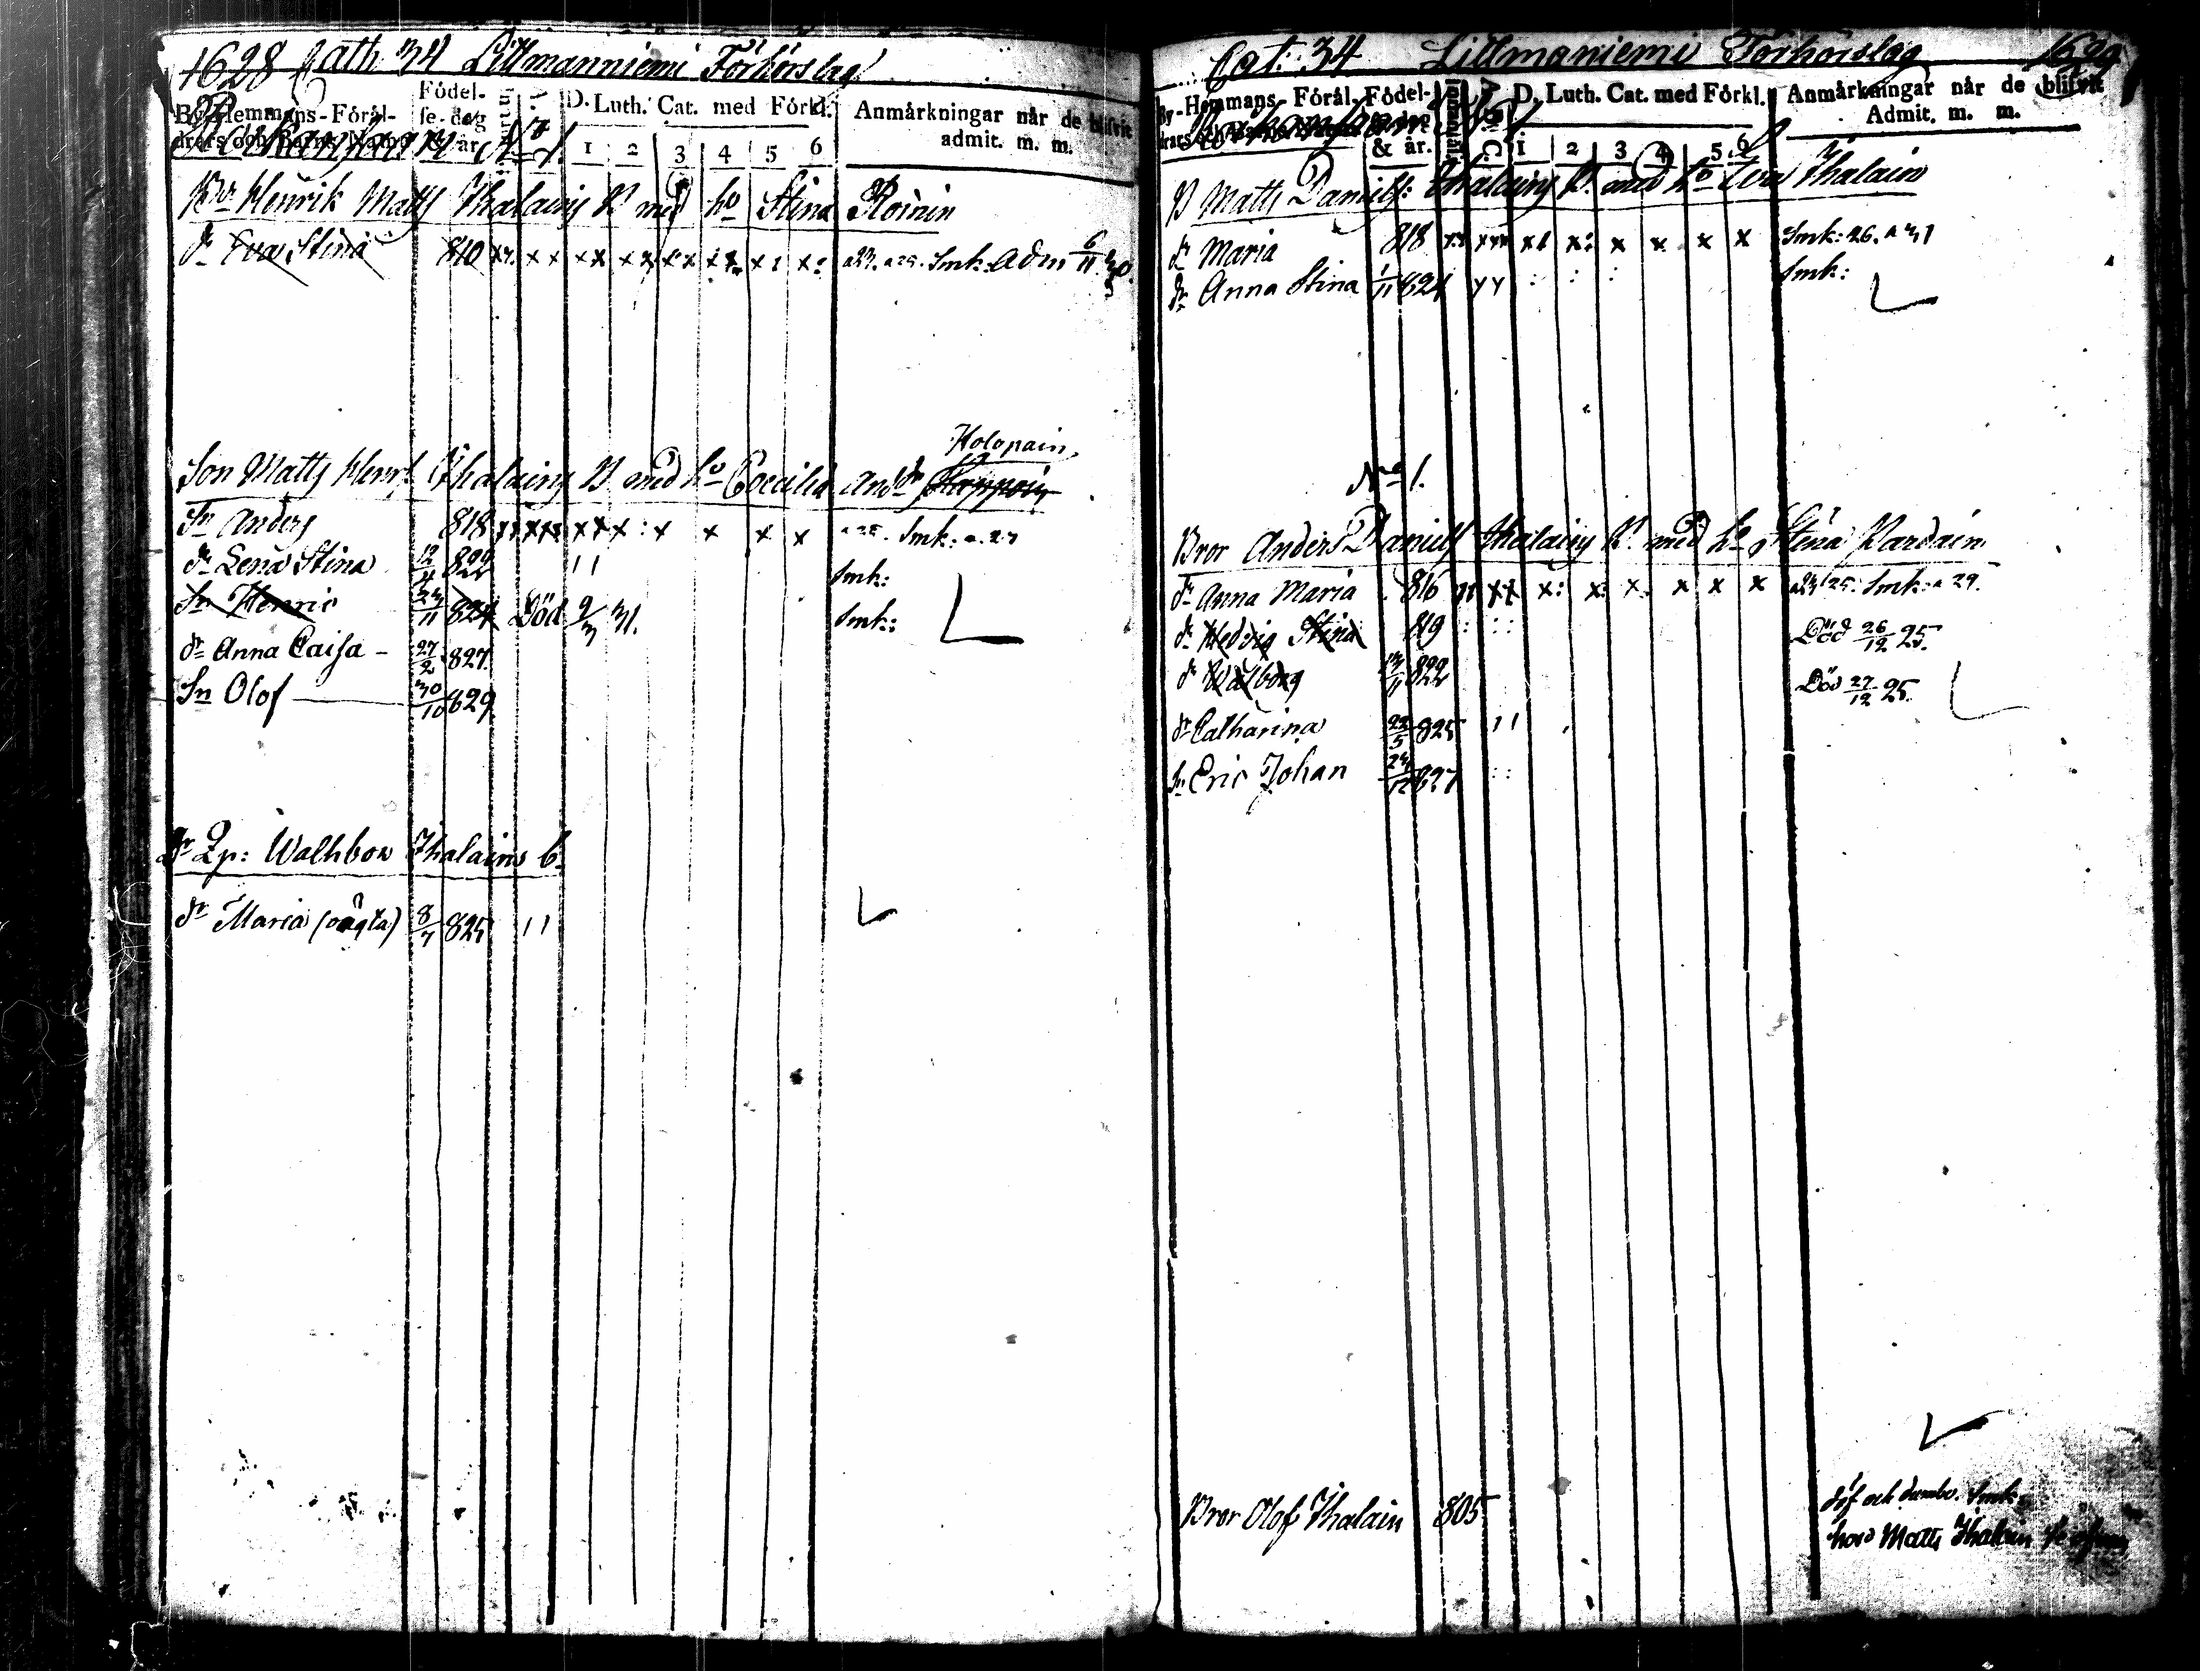 1628 Cath 34 Littmanniemi Förhörslag
By- Hemmans- Föräl-
drers och Barns Namn
Födel-
se-dag
& år.
D. Luth. Cat. med Förkl.
1 2 3 4 5 6
Anmärkningar när de blifvit
admit. m. m.
Br Henrik Matts Ihalains B med ho Stina Roinin
dr Eva Stina 810 x x x x x x x x a 25. Smk. Adm 6/11 30
Holopain
Son Matts Henr Ihalains B med ho Coecilia And dr
Sn Anders 818 x x x x Smk: a. 27
dr Lena Stina 12/4 822 11 Smk:
Sn Henric 23/11 824 Död 9/3 31. Smk:
dr Anna Caisa - 27/2 827
Sn Olof 30/10 829
dr Lp: Walhbor Ihalains b.
dr Maria (oägta) 8/7 825 11
Cat: 34 Littmaniemi Förhörslag 1629
By- Hemmans Föräl-
Födel-
& år.
D. Luth. Cat. med Förkl.
1 2 3 4 5 6
Anmärkningar när de blifvit
Admit. m. m.
B Matts Daniels: Ihalains B. med ho Eva Ihalain
dr Maria 818 x x x x x x Smk: 26. a 31
dr Anna Stina 1/11 824 Smk:
No 1.
Bror Anders Daniels Ihalains B. med ho Stina Pardain
dr Anna Maria 816 x x x x x x Smk: a 29.
dr Hedvig Stina 819 Död 26/12 25.
dr Walborg 13/11 822 Död 27/12 25.
dr Catharina 22/5 825 11
Sn Eric Johan 827
Bror Olof Ihalain 805 döf och dumbe. Smk:
hos Matts Ihalain